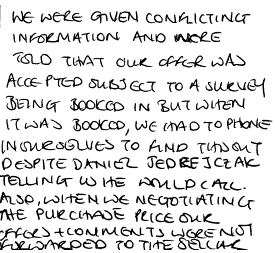 WE WERE GIVEN CONFLICTING
INFORMATION AND WERE
TOLD THAT OUR OFFER WAS
ACCEPTED SUBJECT TO A SURVEY
BEING BOOKED IN BUT WHEN
IT WAS BOOKED, WE HAD TO PHONE
IN OURSELVES TO FIND THIS OUT
DESPITE DANIEL JEDREJCZAK
TELLING US HE WOULD CALL.
ALSO, WHEN WE NEGOTIATING
THE PURCHASE PRICE OUR
OFFERS + COMMENTS WERE NOT
FORWARDED TO THE SELLER